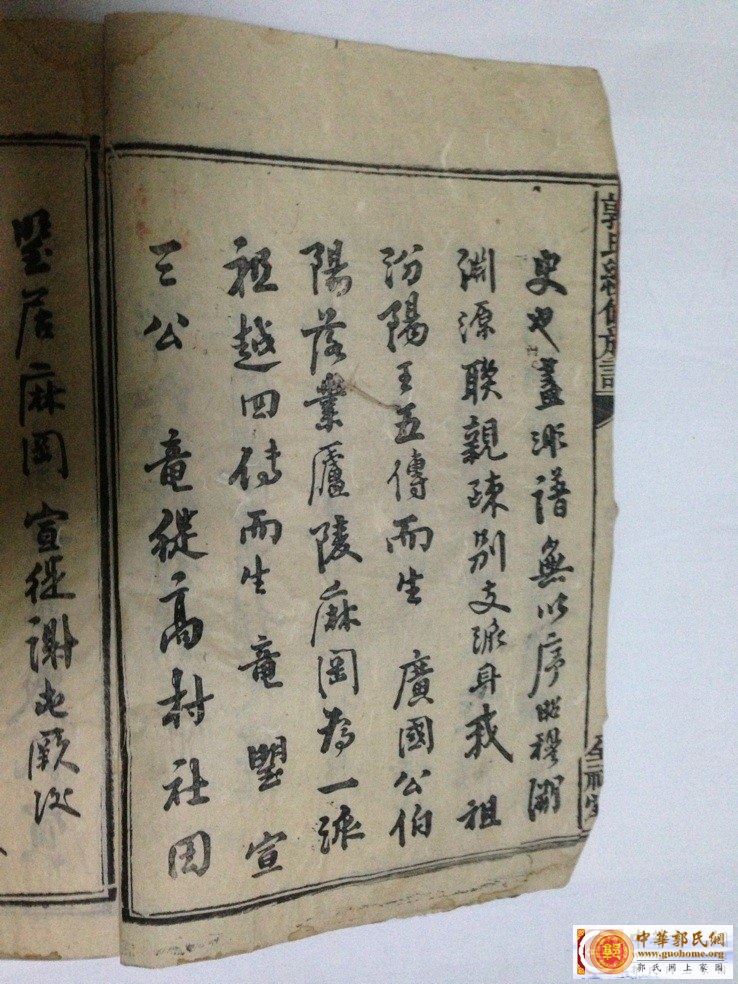 郭氏續修族譜
史也蓋非譜無以序昭穆溯
淵源聯親疎別支派耳我 祖
汾陽王五傳而生 廣國公伯
陽落業廬陵麻岡為一派
祖越四傳而生 竜 曌 宣
三公 竜從高村社田
曌居麻岡宣徙謝屯厥次
中華郭氏網
www.guohome.org
郭氏網上家園